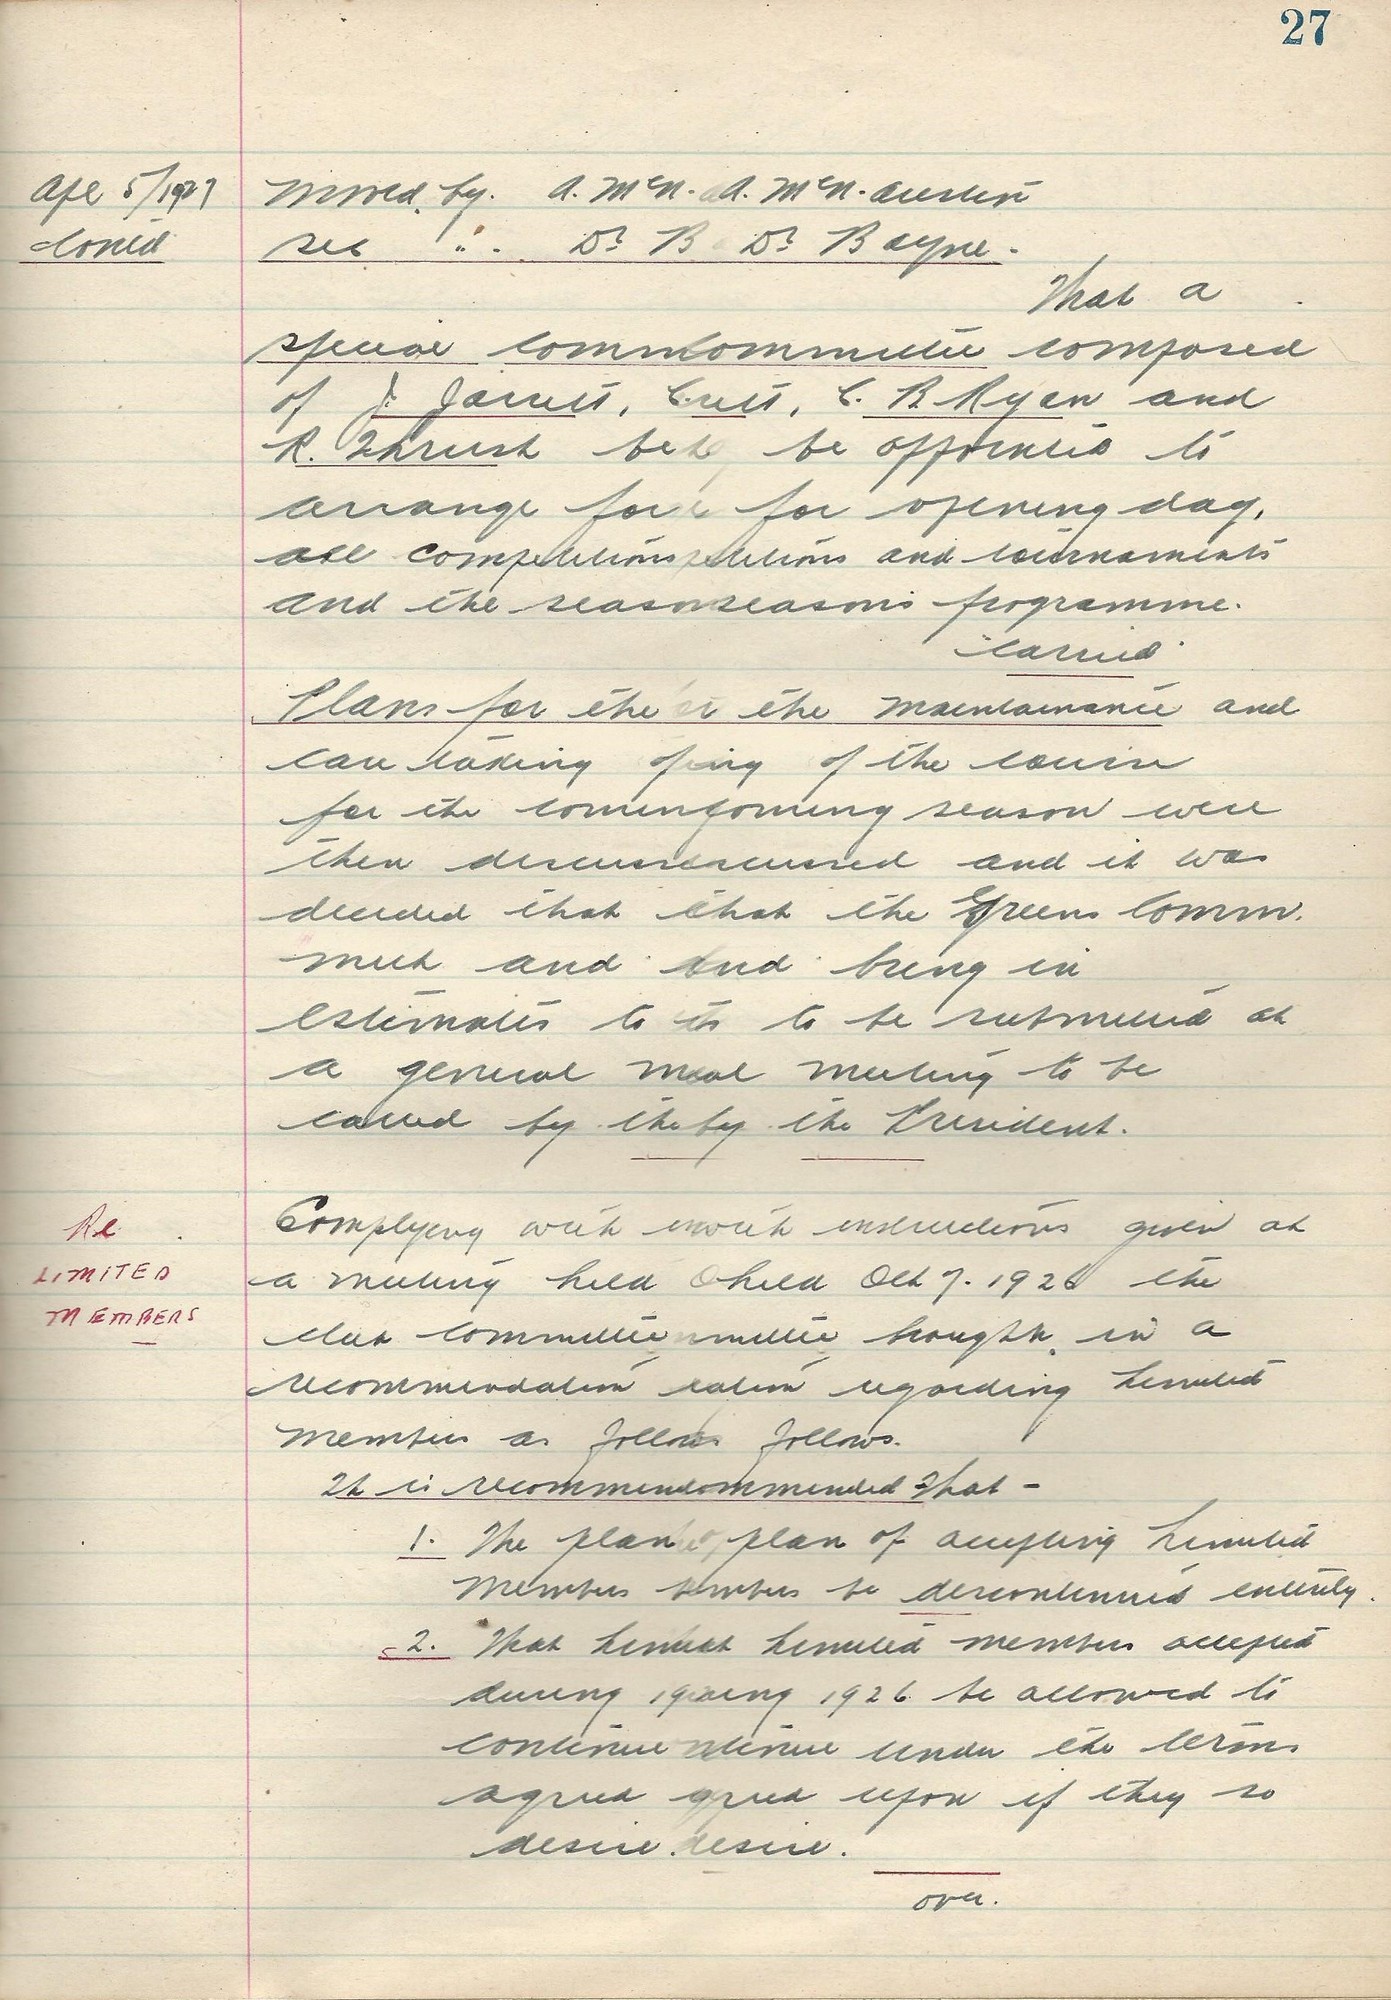 27
Apl 5/1927
Moved by. A. McN. A. McN. Austin
contd
sec " . Dr B Dr Bayne.
That a
special commcommittee composed
of J. Jarrett, C. R. Ryan and
R. Thrust be be appointed to
arrange for for opening day,
all competitionspetitions and tournaments
and the seasonseasons programme.
"carried"
Plans for the or the maintainance and
care taking ofing of the course
for the comingcoming season were
then discussscussed and it was
decided that that the Greens Comm.
meet and and bring in
estimates to to be submitted at
a general meal meeting to be
called by the by the President.
Complying with with instructions given at
Re
a meeting held held Oct 7. 1926 the
LIMITED
MEMBERS
club committeemmittee brought in a
recommendation dation regarding Limited
Members as follows follows.
It is recommendommended that -
1. The plan plan of accepting Limited
Members embers be discontinued entirely.
2. That Limitat Limited members accepted
during 19ing 1926 be allowed to
continue ntinue under the terms
agreed greed upon if they so
desire. desire.
over.